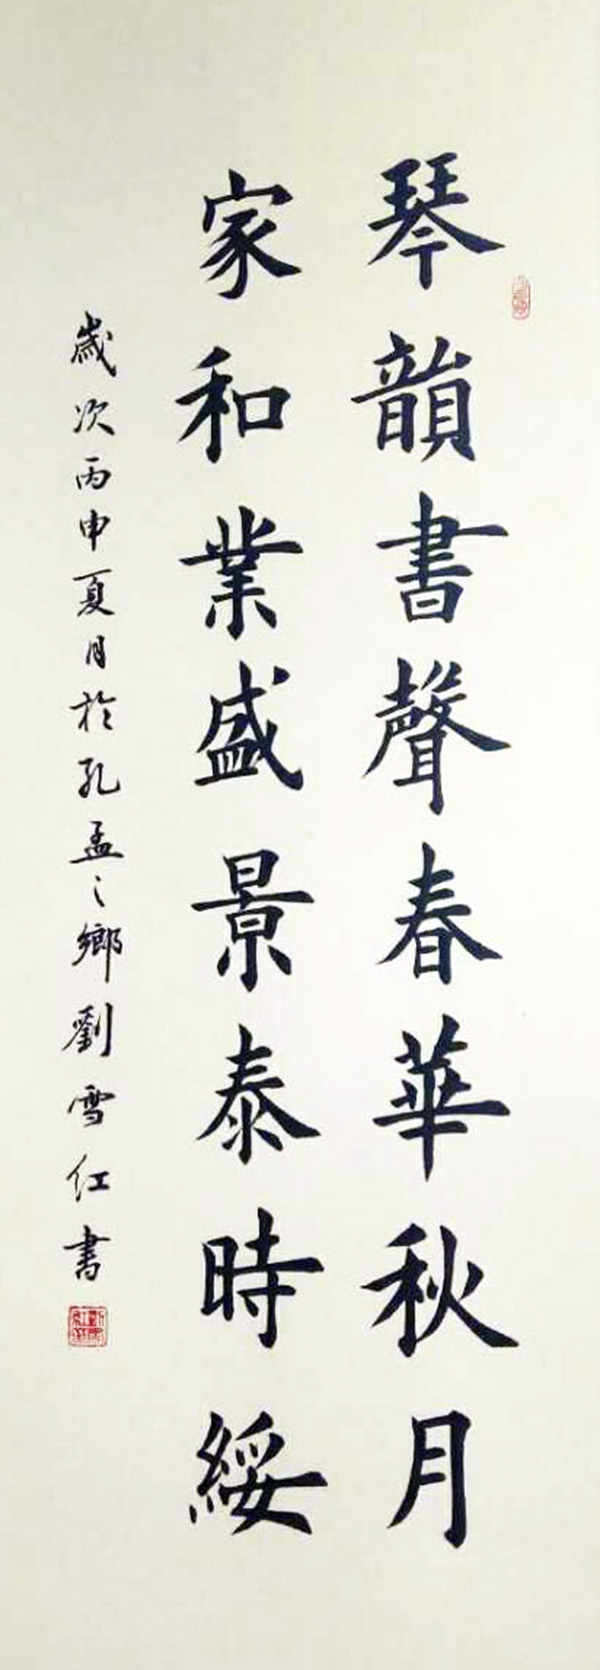 琴韻書聲春華秋月
家和業盛景泰時綏
歲次丙申夏月於孔孟之鄉劉雪红書